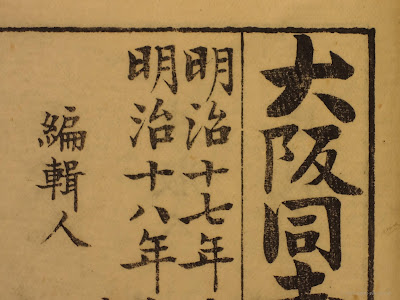 大阪同
明治十七年
明治十八年
編輯人